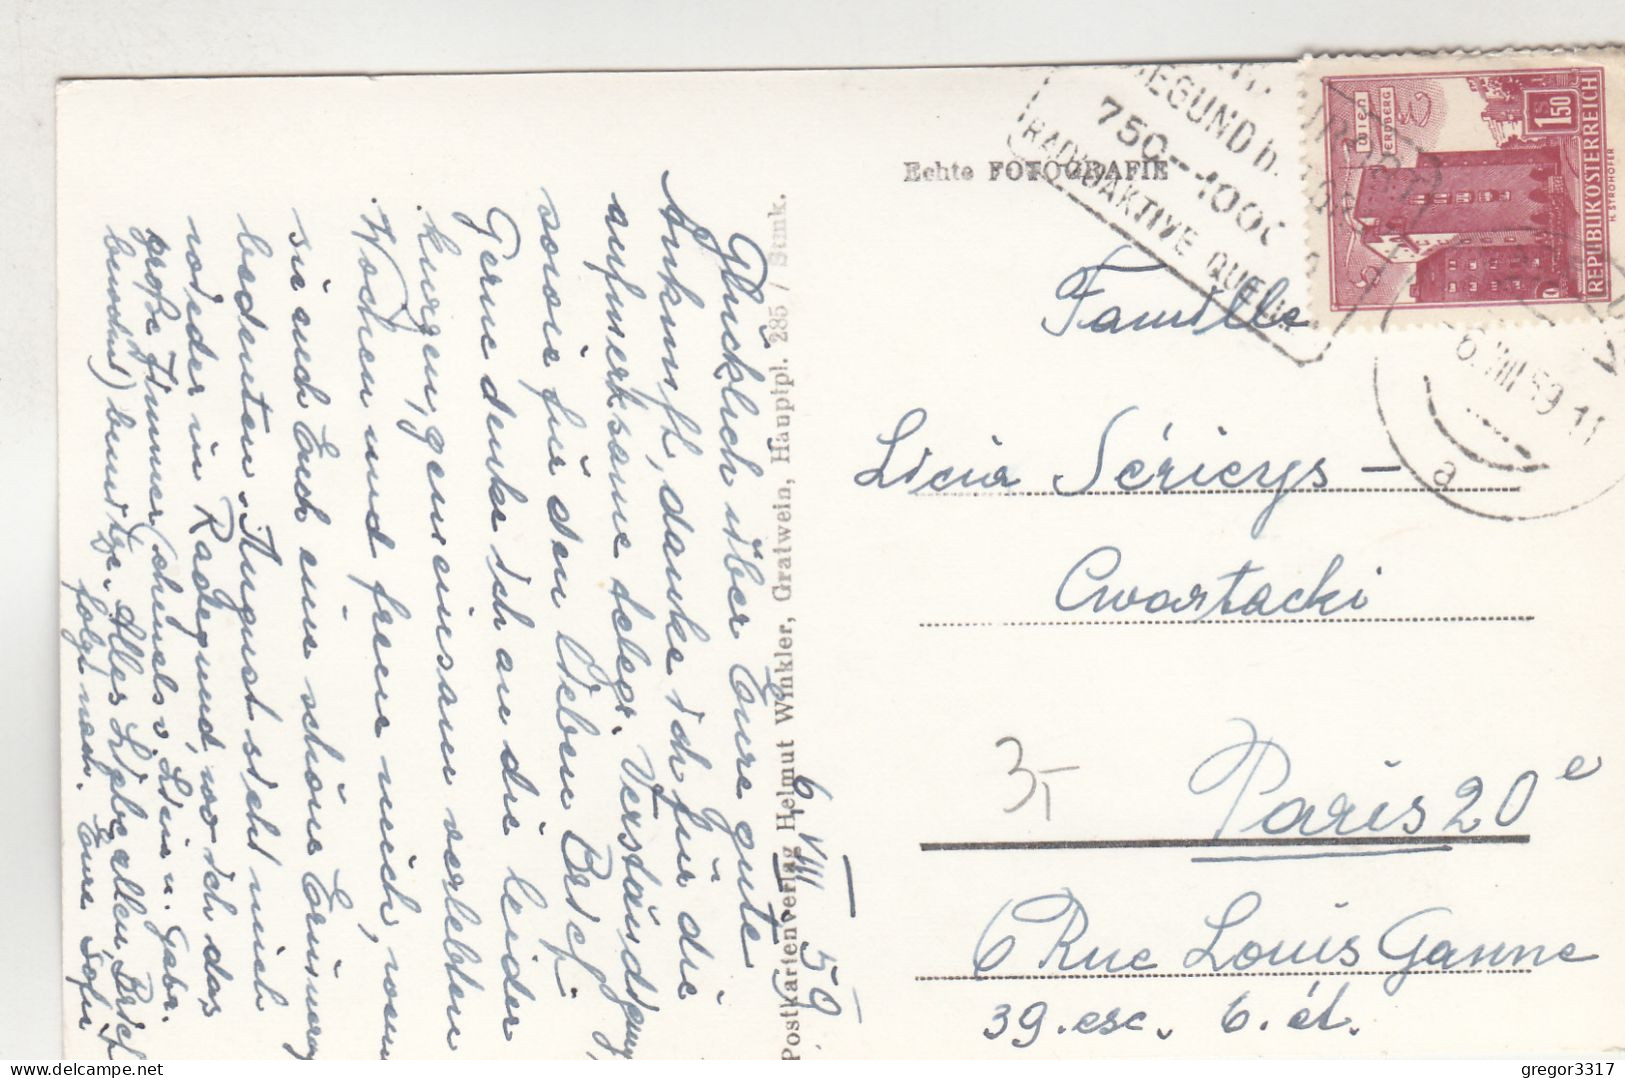 6. VIII 59
Glücklich über Eure gute
Ankunft, danke ich für die
aufmerksame telegr. Verständigung,
sowie für den lieben Brief.
Gerne denke ich an die leider
kurzen, gemeinsam verlebten
Wochen und freue mich, wenn
sie auch Euch eine schöne Erinnerung
bedeuten. August sieht mich
wieder in Radegund, wo ich das
große Zimmer (ehemals v. Livia u. Gabr.
bewohnt) benütze. Alles Liebe allen, Brief
folgt nach. Eure Safi
Postkartenverlag Helmut Winkler, Gratwein, Hauptpl. 285 / Stmk.
Echte FOTOGRAFIE
RADEGUND b. GRAZ
750--1000
RADIOAKTIVE QUELLE
WIEN
ERDBERG
1.50
S
REPUBLIK ÖSTERREICH
H. STROHOFER
6. VIII 59 11
a
Familie
Licia Séricys –
Cwartacki
3,-
Paris 20e
6 Rue Louis Ganne
39. esc. 6. ét.
gregor3317